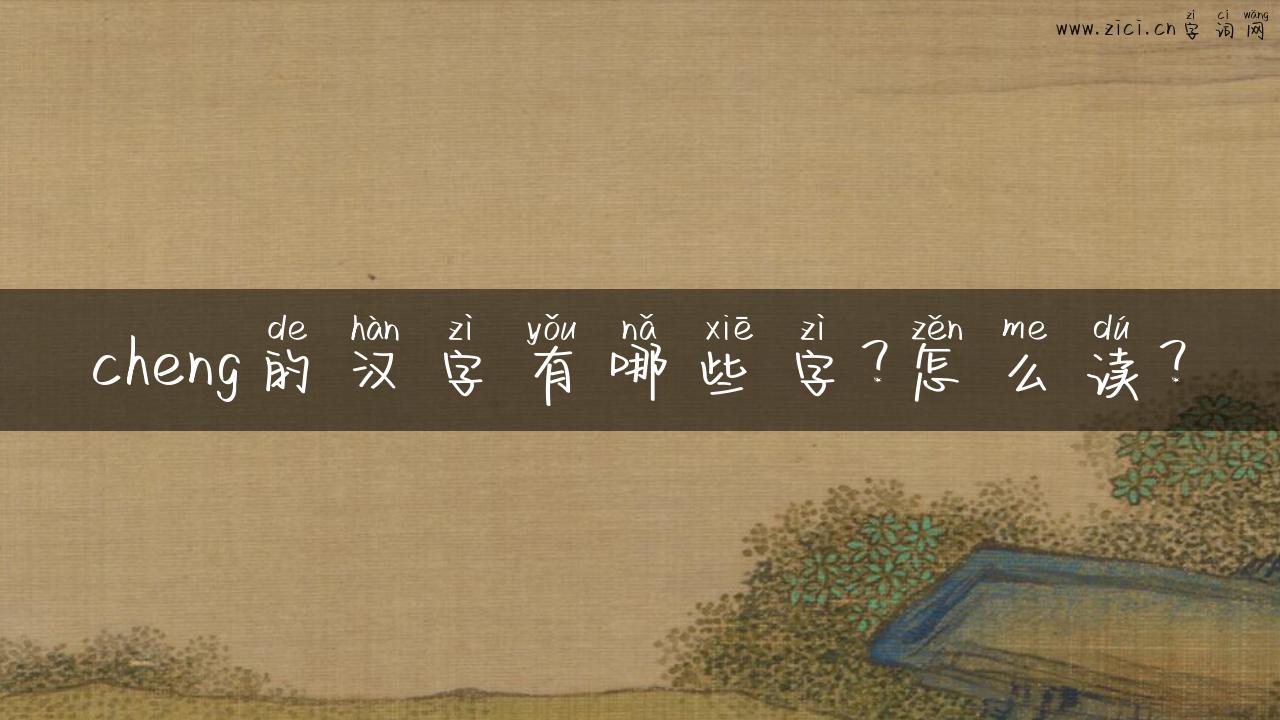 zì cí wǎng
www.zici.cn字词网
de hàn zì yǒu nǎ xiē zì zěn me dú
cheng的汉字有哪些字?怎么读?